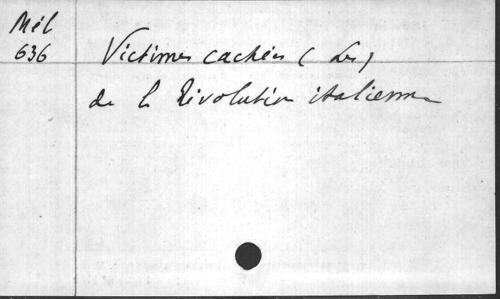 Mél
636
Victimes cachées (Les)
de la Révolution italienne